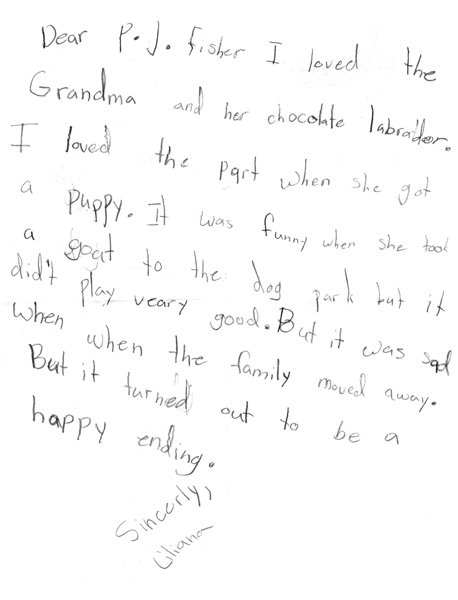 Dear P.J. Fisher I loved the
Grandma and her chocolate labrador.
I loved the part when she got
a puppy. It was funny when she took
a goat to the dog park but it
didt play veary good. But it was sad
when when the family moved away.
But it turned out to be a
happy ending.
Sincerly,
Liliana